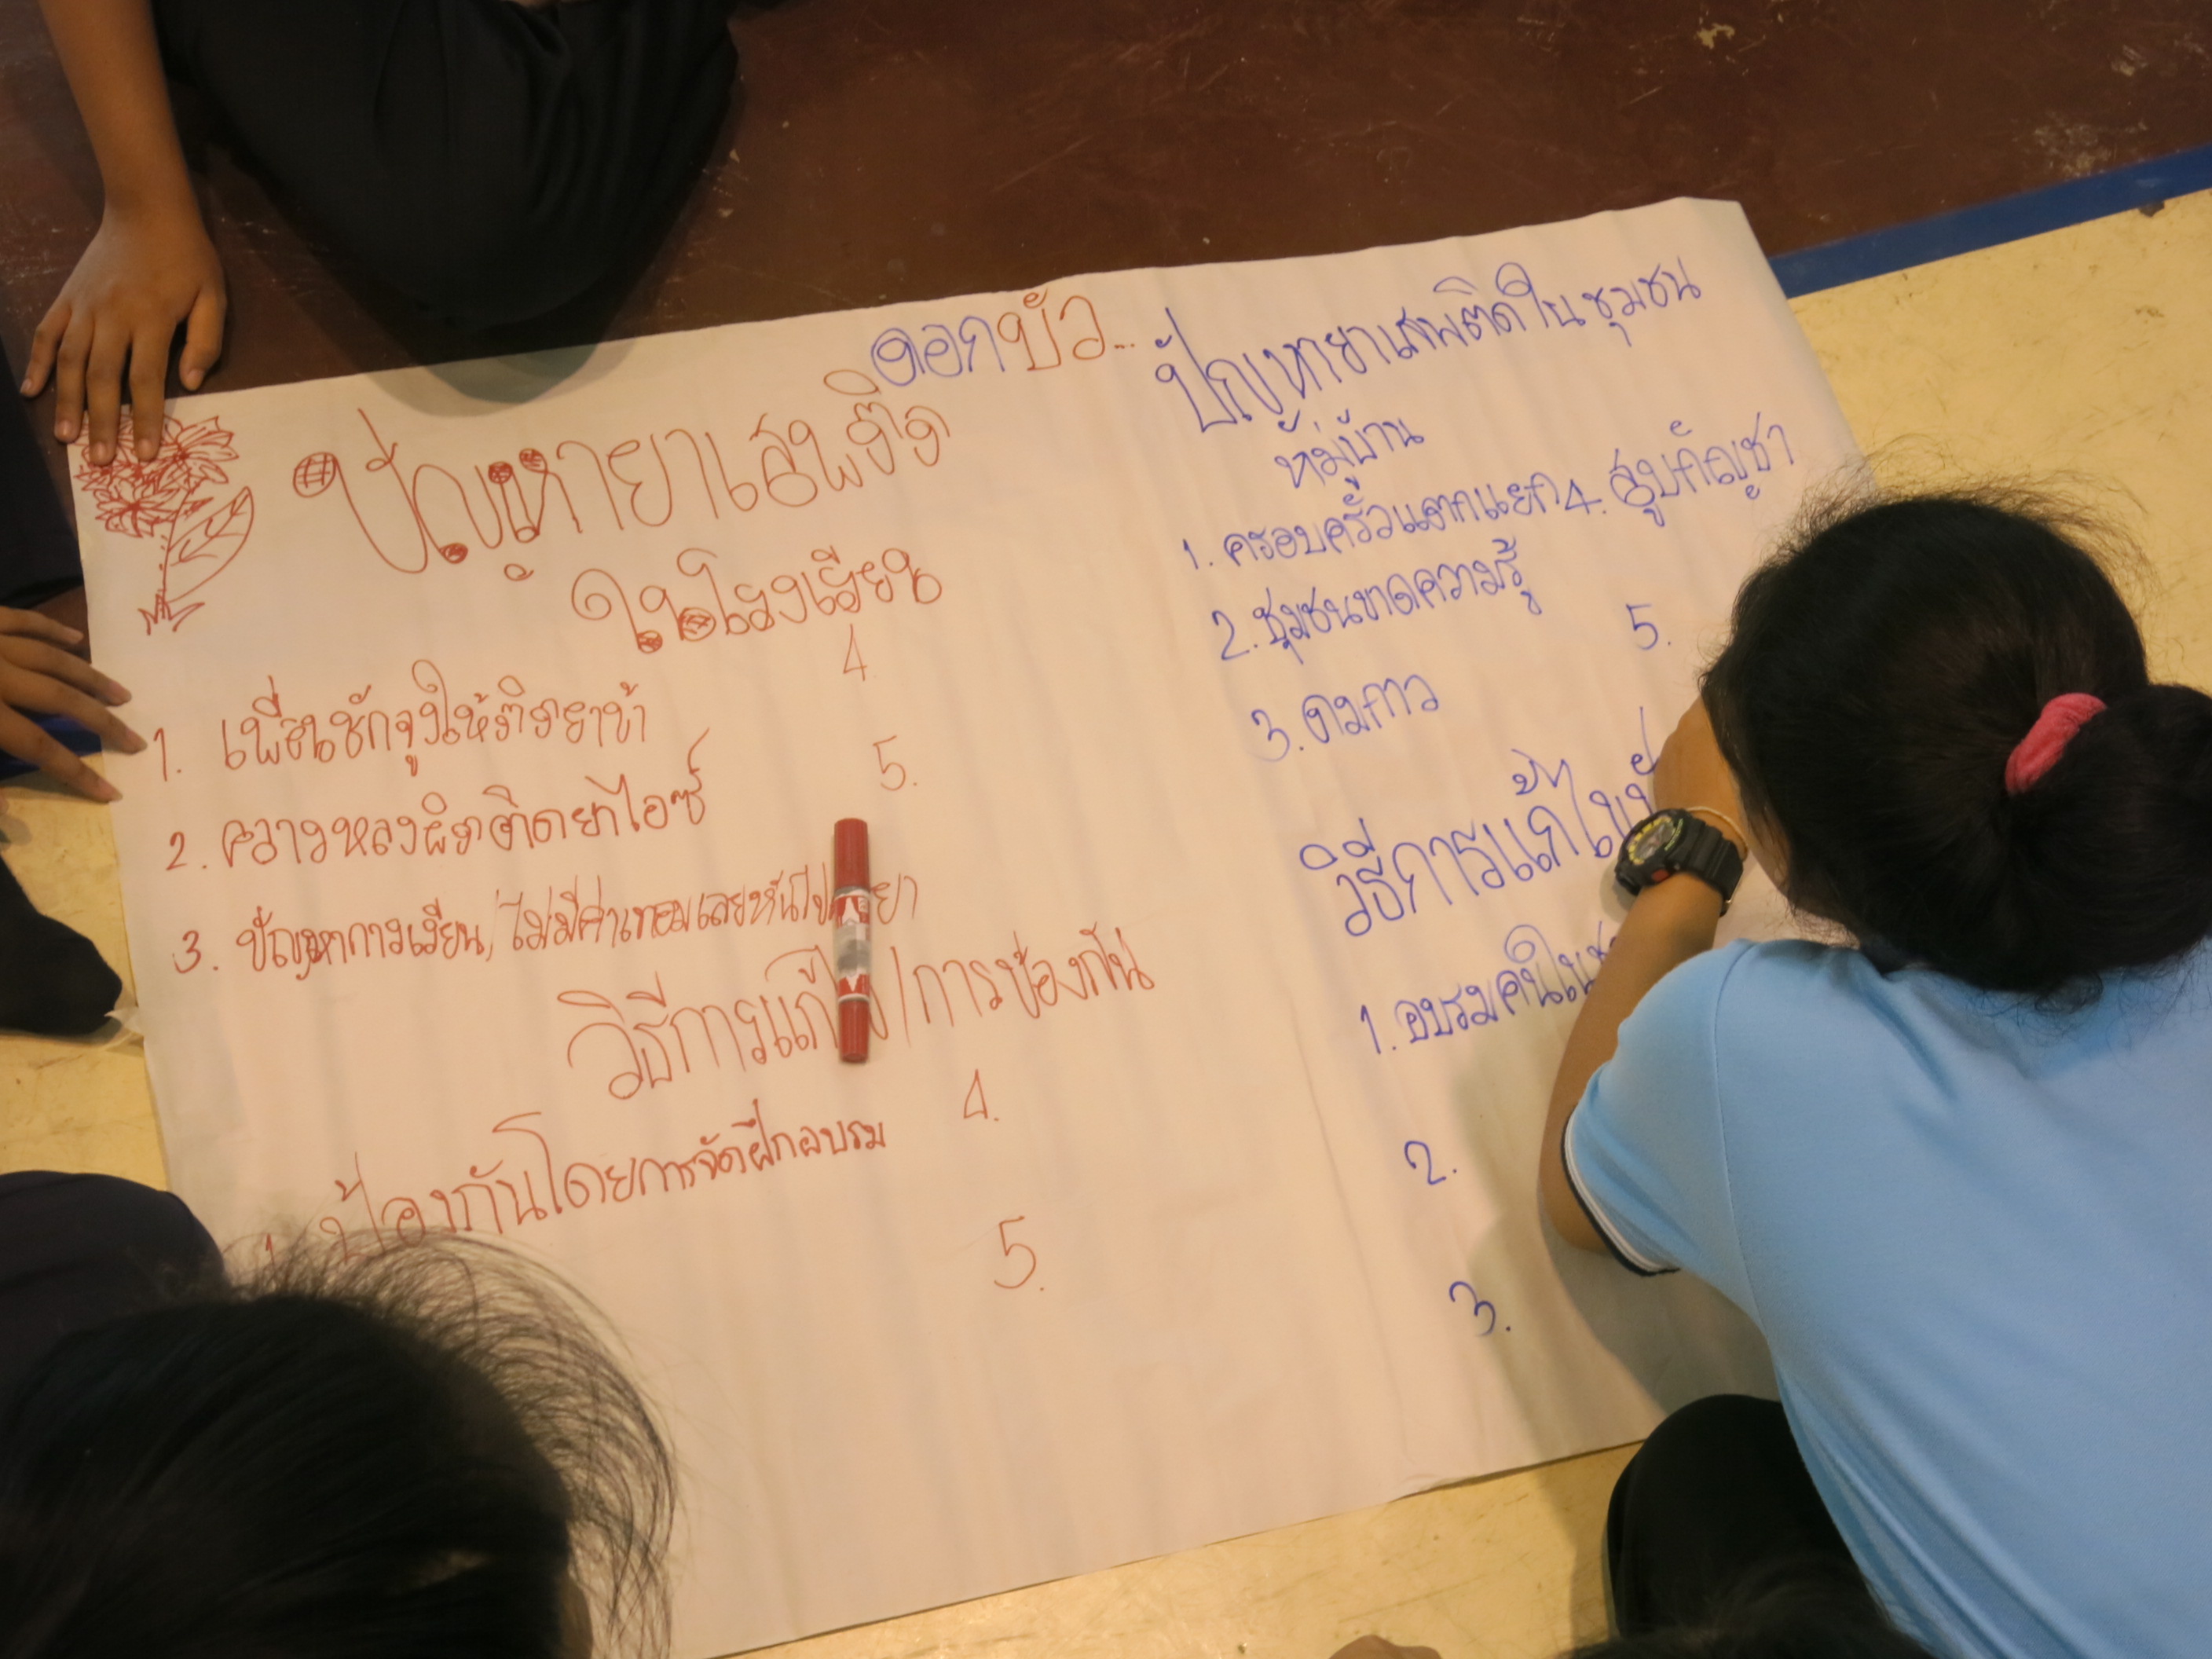 ดอกบัว...
ปัญหายาเสพติด
ในโรงเรียน
1. เพื่อนชักจูงให้ติดยาบ้า
2. ความหลงผิดติดยาไอซ์
3. ปัญหาการเรียน/ไม่มีค่าเทอมเลยหันไป ยา
4
5.
วิธีการแก้ /การป้องกัน
1. ป้องกันโดยการจัดฝึกอบรม
4.
5.
ปัญหายาเสพติดในชุมชน
หมู่บ้าน
1. ครอบครัวแตกแยก
2. ชุมชนขาดความรู้
3. ดมกาว
4. สูบกัญชา
5.
วิธีการแก้ไข
1. อบรมคนใน
2.
3.